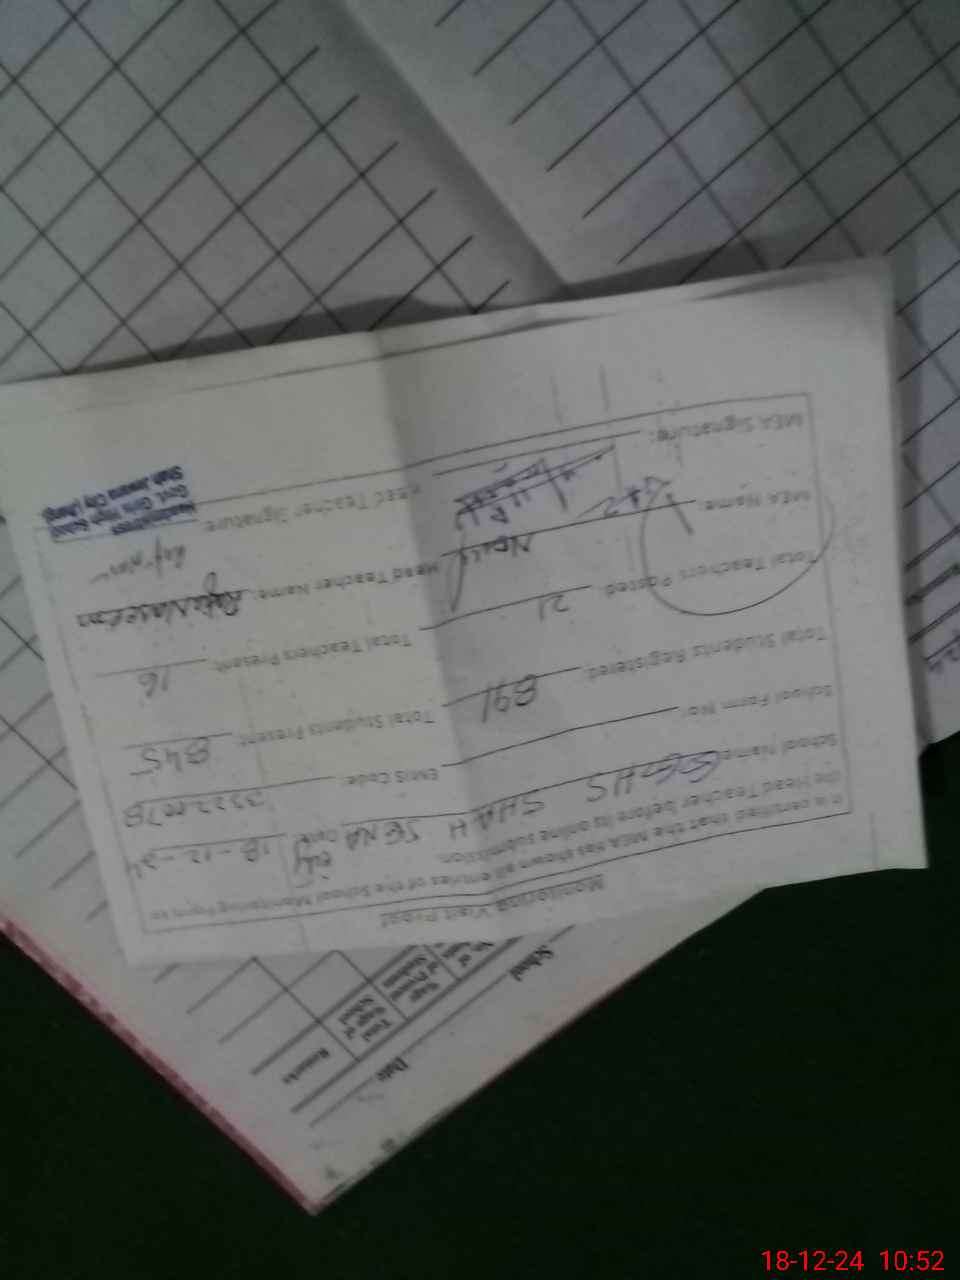 Monitoring Visit Proof
It is certified that the MEA has shown all entries of the School Monitoring Form to
the Head Teacher before its online submission.
School Name: GGHS SHAH JEWNA City Date 18-12-24
School Form No: EMIS Code: 33220078
Total Students Registered: 891 Total Students Present: 845
Total Teachers Posted: 21 Total Teachers Present: 16
MEA Name: Head Teacher Name:
MEA Signature: Head Teacher Signature:
Headmistress
Govt. Girls High School
Shah Jewana City (Jhang)
School
Date
Total
Wage of
School
Remarks
18-12-24 10:52